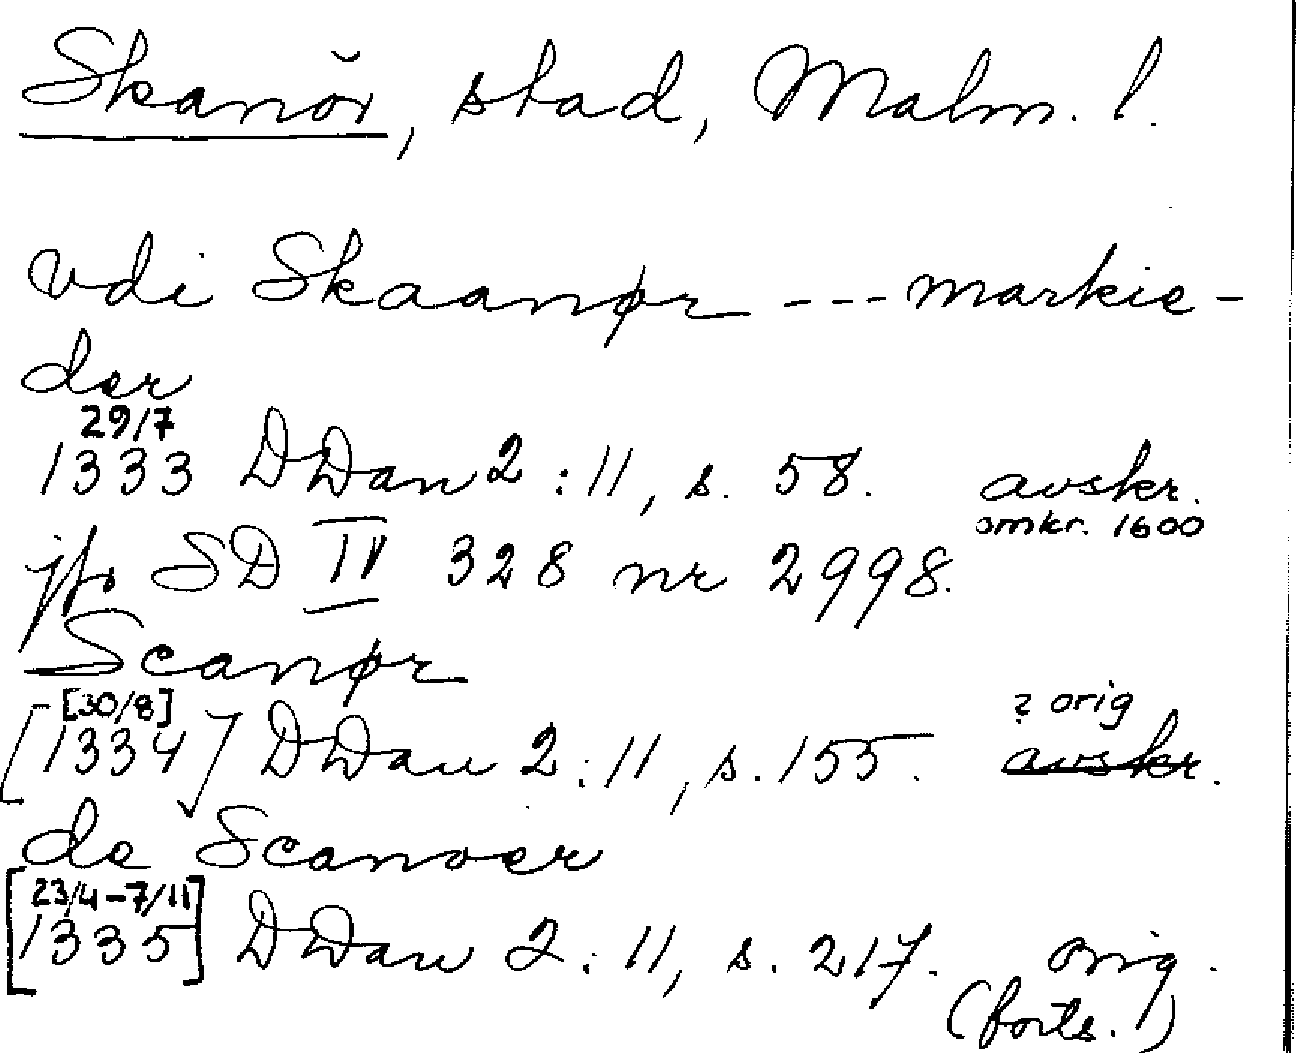 Skanör, stad, Malm. l.
vdi Skaanør --- markie-
der
29/7
1333 DDan 2:11, s. 58. avskr.
omkr. 1600
jfr SD IV 328 nr 2998.
Scanør
[30/8] ? orig
[1334] DDan 2:11, s. 155. avskr.
de Scanoer
[23/4-7/11
1335] DDan 2:11, s. 217. orig.
(forts.)